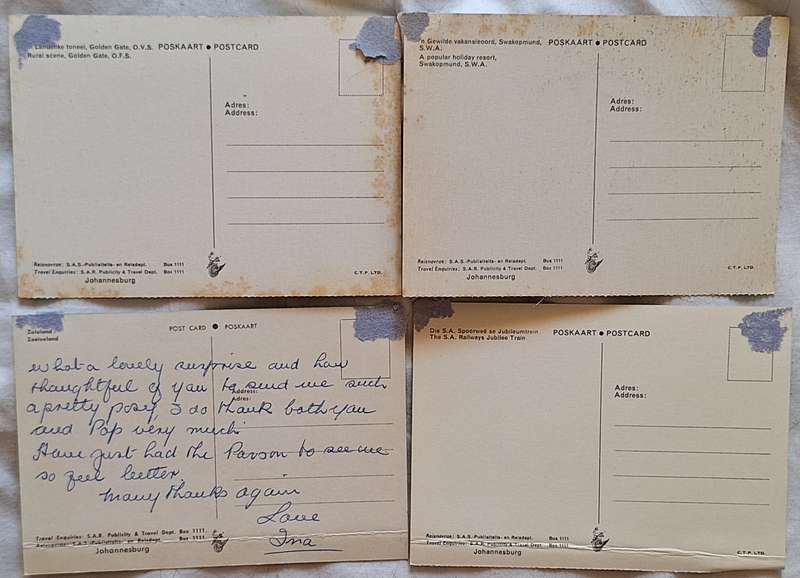 Landelike toneel, Golden Gate, O.V.S.
Rural scene, Golden Gate, O.F.S.
POSKAART ● POSTCARD
Adres:
Address:
Reisnavrae: S.A.S.-Publisiteits- en Reisdept. Bus 1111
Travel Enquiries: S.A.R. Publicity & Travel Dept. Box 1111
Johannesburg
C.T.P. LTD.
'n Gewilde vakansieoord, Swakopmund,
S.W.A.
A popular holiday resort,
Swakopmund, S.W.A.
POSKAART ● POSTCARD
Adres:
Address:
Reisnavrae: S.A.S.-Publisiteits- en Reisdept. Bus 1111
Travel Enquiries: S.A.R. Publicity & Travel Dept. Box 1111
Johannesburg
C.T.P. LTD.
Zululand
Zoeloeland
POST CARD ● POSKAART
What a lovely surprise and how
thoughtful of you to send me such
a pretty posy, I do thank both you
and Pop very much.
Have just had the Parson to see me
so feel better.
Many thanks again
Love
Ina
Address:
Adres:
Travel Enquiries: S.A.R. Publicity & Travel Dept. Box 1111.
Reisnavrae: S.A.S.-Publisiteits- en Reisdept. Bus 1111.
Johannesburg
Die S.A. Spoorweë se Jubileumtrein
The S.A. Railways Jubilee Train
POSKAART ● POSTCARD
Adres:
Address:
Reisnavrae: S.A.S.-Publisiteits- en Reisdept. Bus 1111
Travel Enquiries: S.A.R. Publicity & Travel Dept. Box 1111
Johannesburg
C.T.P. LTD.